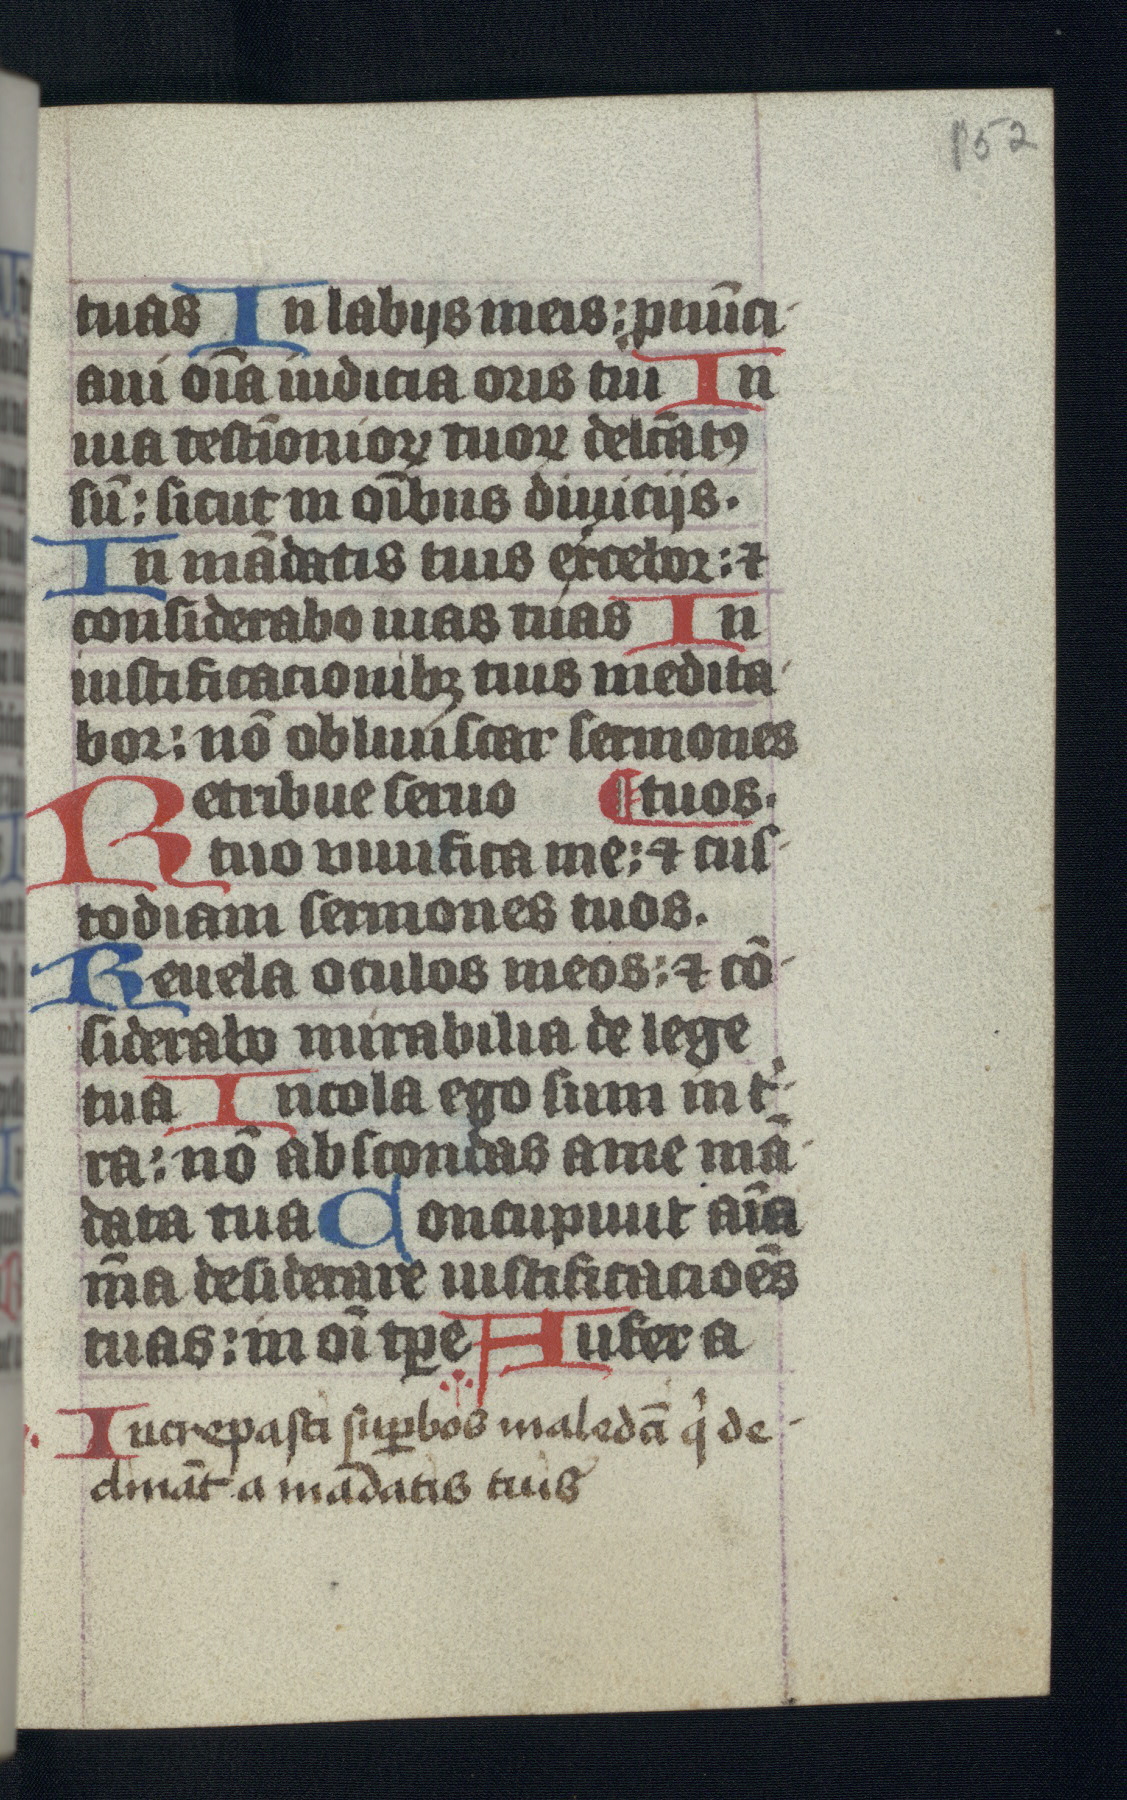 152
tuas In labijs meis: ꝓnūci-
aui oīa iudicia oris tui In
uia testīonioꝝ tuoꝝ delc̄atꝰ
sū: sicut in oībus diuicijs.
In mādatis tuis exꝛcebor: ⁊
considerabo uias tuas In
iustificacionibꝫ tuis medita-
bor: nō obliuiscar sermones
Retribue seruo ¶ tuos.
tuo uiuifica me: ⁊ cus-
todiam sermones tuos.
Reuela oculos meos: ⁊ cō-
siderabo mirabilia de lege
tua Incola ego sum in t̓-
ra: nō abscondas a me mā-
data tua Concupiuit aīa
m̄a desiderare iustificacioēs
tuas: in oī tp̄e Aufer a
Increpasti suꝑbos maledc̄i qͥ de-
clināt a mādatis tuis